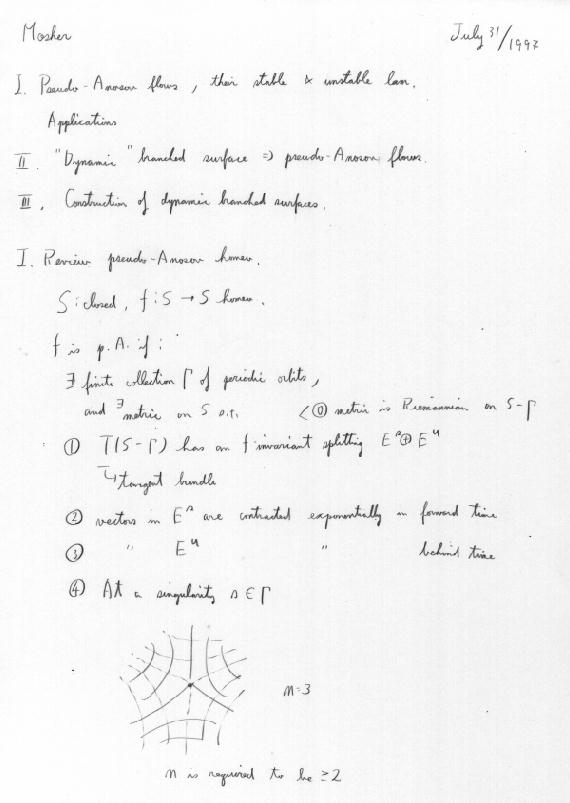 Mosher
July 31/1997
I. Pseudo-Anosov flows, their stable & unstable lam.
Applications
II. "Dynamic" branched surface ⇒ pseudo-Anosov flows.
III. Construction of dynamic branched surfaces.
I. Review pseudo-Anosov homeo.
S: closed, f: S → S homeo.
f is p.A. if:
∃ finite collection Γ of periodic orbits,
and ∃ metric on S s.t. <⓪ metric is Riemannian on S-Γ
① T(S-Γ) has an f invariant splitting E^s ⊕ E^u
↳ tangent bundle
② vectors in E^s are contracted exponentially in forward time
③ " E^u " behind time
④ At a singularity s ∈ Γ
n=3
n is required to be ≥2